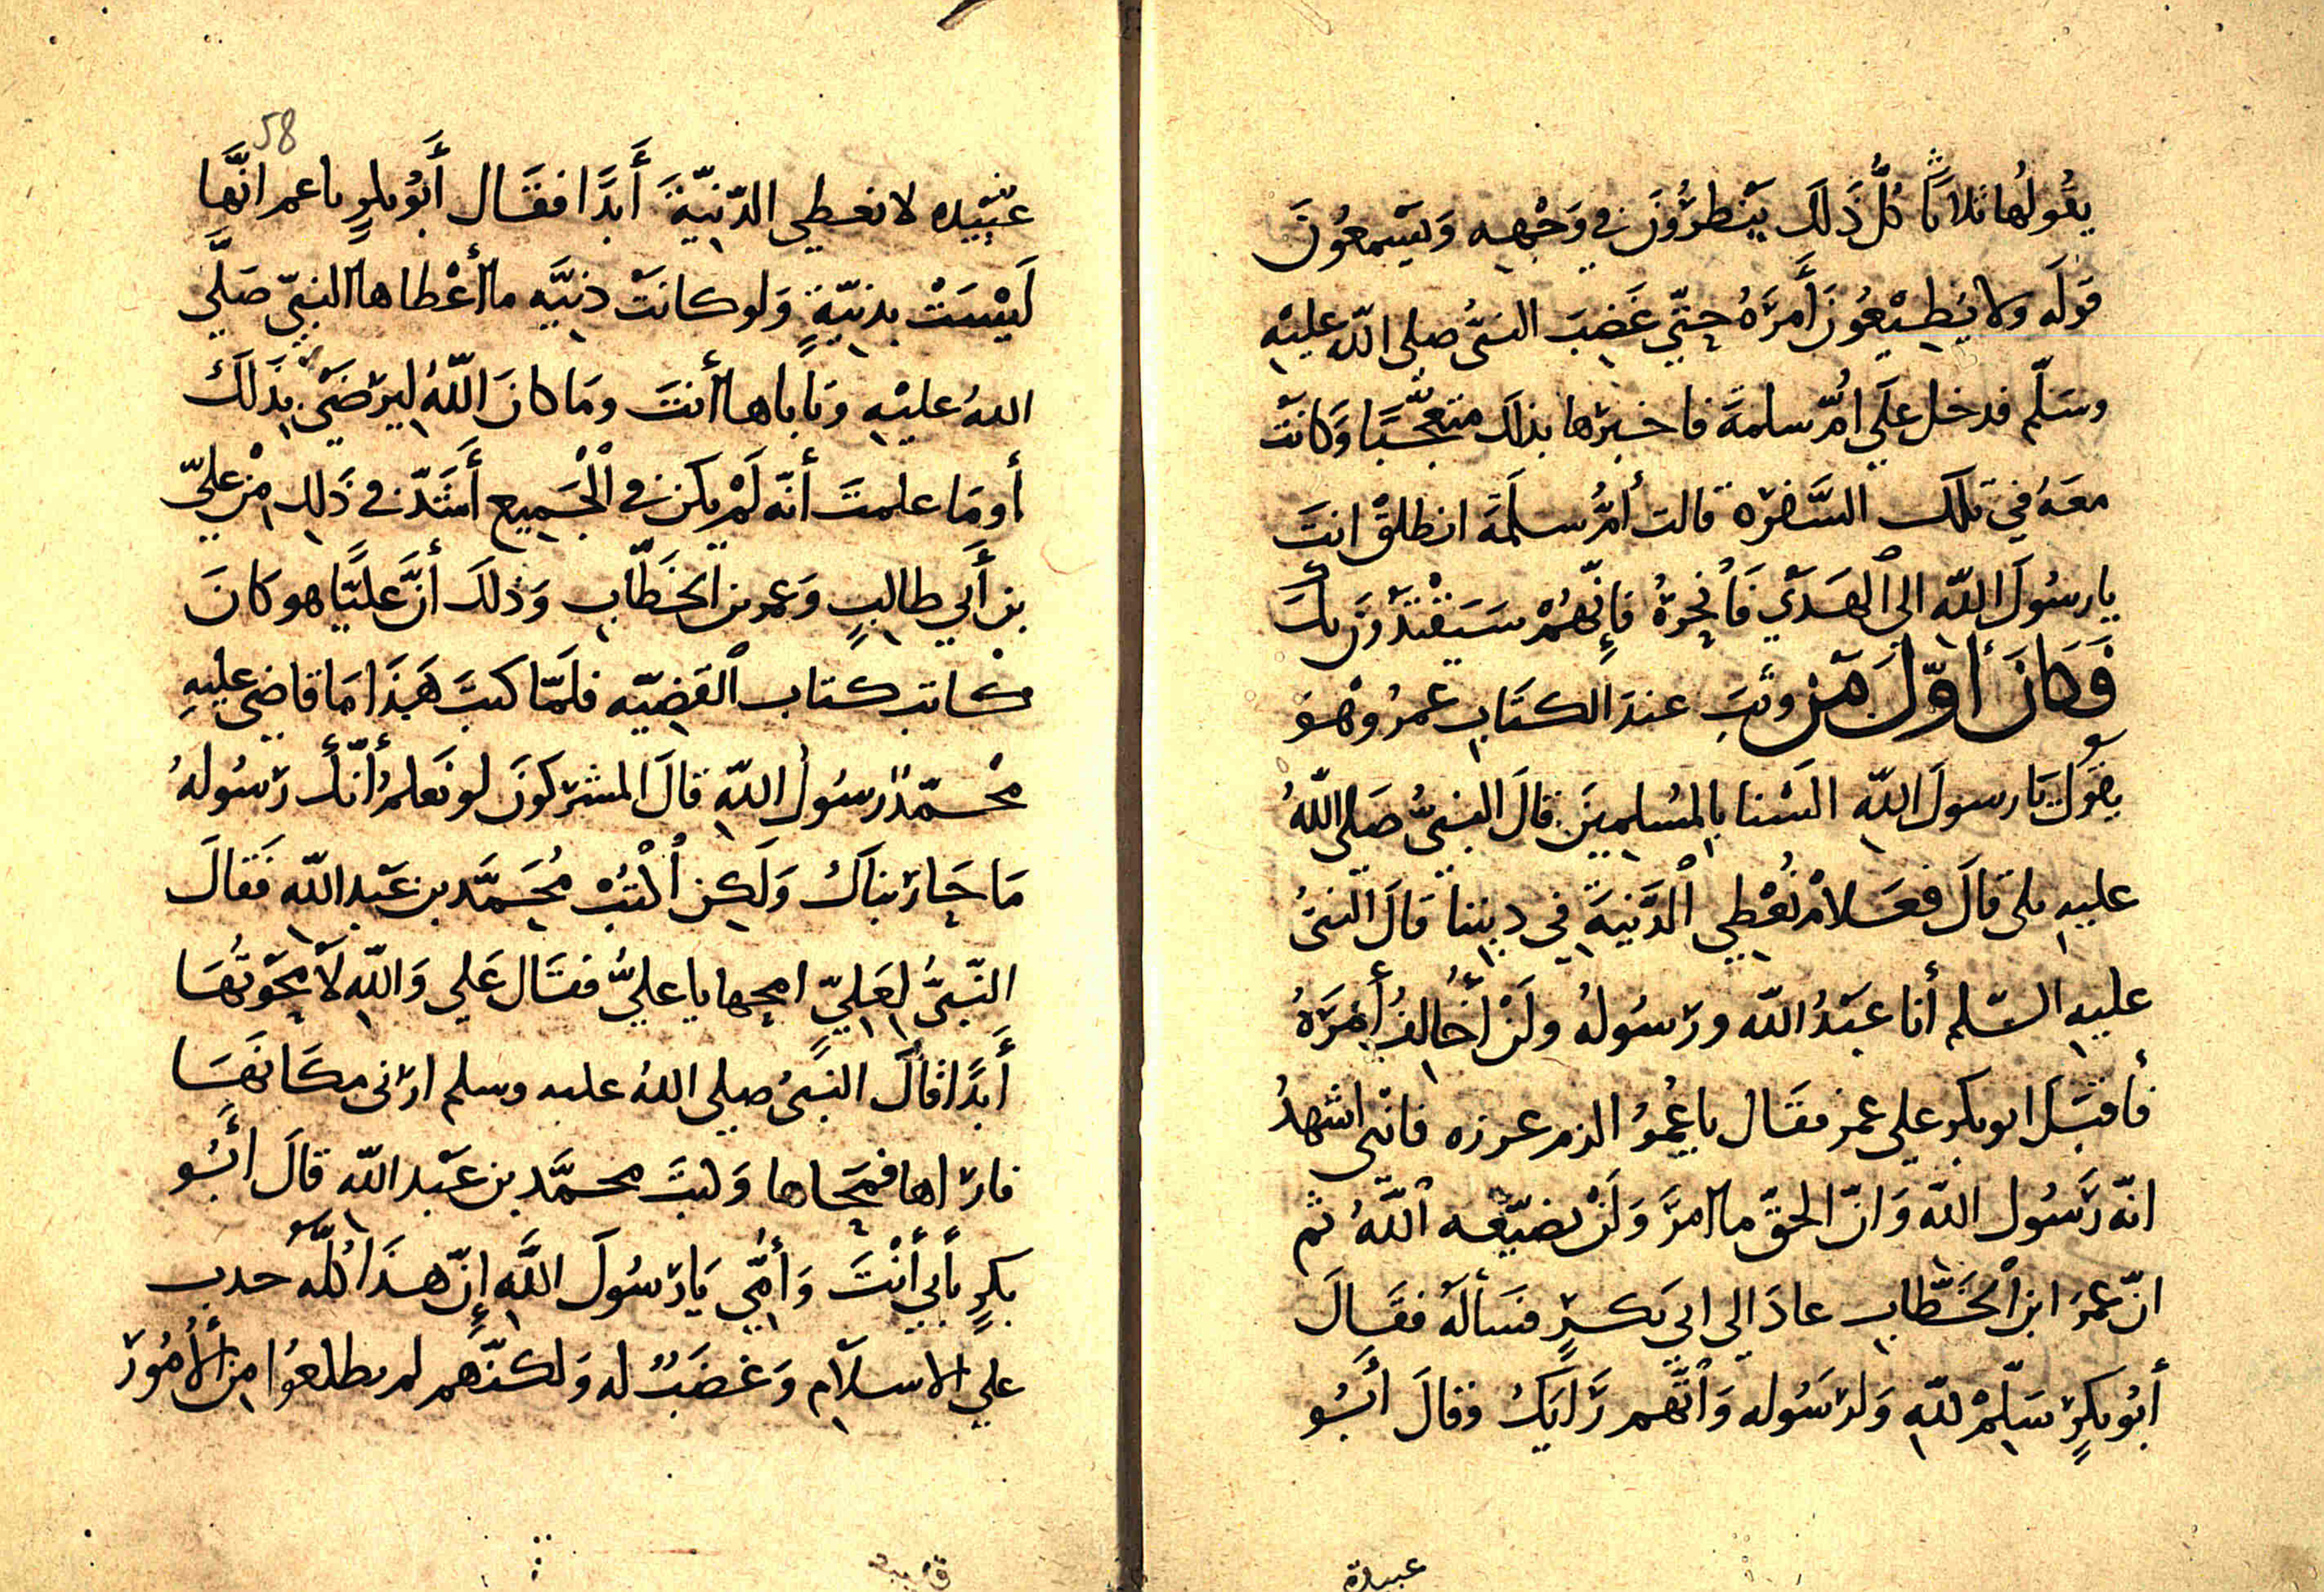 يقُولُها ثلاثًا كُلُّ ذَلَكَ يَنْظرُونَ في وَجْهِهِ وَيَسْمعُونَ
قَولَه ولا يُطِيْعُونَ أَمرَهُ حتّي غَضِبَ النبيُّ صلى اللّه عليْهِ
وسَلّم فدخل علَي امُّ سلمةَ فاخبرَها بذلكَ متعجّبًا وَكانَتْ
معَهُ في تلكَ السَّفرَه قالت أمُّ سلَمَةَ انطلقْ انتَ
يا رسُولَ اللّهِ الى الهَدْيِ فَانْحِرهُ فإِنّهُمْ سَيَقْتَدُونَ بكَ
فَكَانَ أوّلَ مَن وثَبَ عندَ الكتَابِ عُمرُ وَهْوَ
يقول يَا رسولَ اللّهِ السْنا بِالمُسلمِينَ قالَ النبيُّ صَلى اللّهُ
عليهِ بلى قالَ فعَلامَ نُعْطِي الدَّنيّةَ في دِيننا قَالَ النبيُّ
عليهِ السّلم أنا عبْدُ اللّه ورسُولهُ ولَنْ أُخالِفَ أَمرَهُ
فأقبَلَ ابو بكر علي عمر فقَال يا عُمَرُ الزم غرزه فانّي اشهدُ
انّه رَسُول اللّه وَانّ الحقّ ما امرَ وَلَنْ يضيّعه اللّهُ ثم
انّ عمرَ ابن الخَطَّابِ عادَ الي ابي بَكرٍ فسَألهُ فقَالَ
أبُو بكرٍ سَلِّمْ للّهِ وَلرَسُوله وَاتّهم رَايَكَ فقالَ أبُو
عبيدة
58
عُبَيْده لا نعطي الدّنيّةَ أَبدًا فقَال أَبُو بكرٍ يا عمر انَّهَا
لَيْسَتْ بدنيّةٍ وَلو كانَتْ دنيَّه ما أعْطاها النبيّ صَلَّي
اللهُ عليْهِ وَيَاباها أنتَ ومَا كانَ اللّهُ ليَرْضَي بِذَلكَ
أومَا علمتَ أنّه لَمْ يكن في الجَمِيع أَشَدّ في ذَلِكَ مِنْ عليّ
بن أَبي طالبٍ وَعمر بن الخَطّابِ وَذلكَ أنَّ عليًّا هو كانَ
كاتب كتاب القَضِيّه فلَمّا كتبَ هَذَا مَا قاضى عليهِ
محمّدٌ رسُول اللّهِ قالَ المشركونَ لو نَعلمُ أنّكَ رَسُولهُ
مَا حَارَبناكَ وَلَكِن اكْتُبْ مُحَمَّد بن عَبْدِ اللّهِ فَقالَ
النّبيُّ لِعَليّ امحها يا عليُّ فقَال عَلي وَاللّهِ لاَ محَوتُهَا
أَبَدًا قالَ النبيُ صلي اللهُ عليه وسلم ارَنى مكَانَهَا
فارَاها فمَحَاها وَكتبَ محمَّد بن عَبْد اللّه قالَ أبُو
بكرٍ بأبي أنْتَ وَأمّي يَا رَسُولَ اللَّهِ إِنّ هذَا كُلَّهُ حدب
علي الاسلاَمِ وَغضَبٌ له وَلكنّهم لم يطلعُوا مِن الأمُورَ